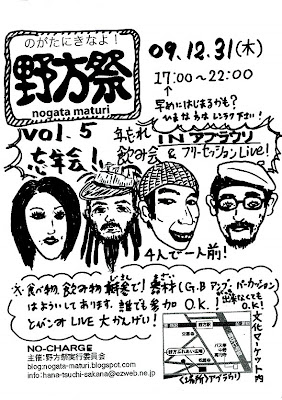 のがたにきなよ!
野方祭
nogata maturi
09.12.31(木)
17:00〜22:00
↑
早めにはじまるかも?
ひまな方はレンラク下さい!
vol.5
忘年会!!
年忘れ
飲み会
IN アブラウリ
& フリーセッションLive!
4人で一人前!
食べ物、飲み物 持参で! 素材(G.B アンプ、パーカッション)
じさん
はようい してあります。誰でも参加 O.K.!
出来なくても
O.K!
とびこみ LIVE 大かんげい!
文化マーケット内
NO-CHARGE
主催:野方祭実行委員会
blog:nogata-maturi.blogspot.com
info:hana-tsuchi-sakana@ezweb.ne.jp
<場所>アブラウリ